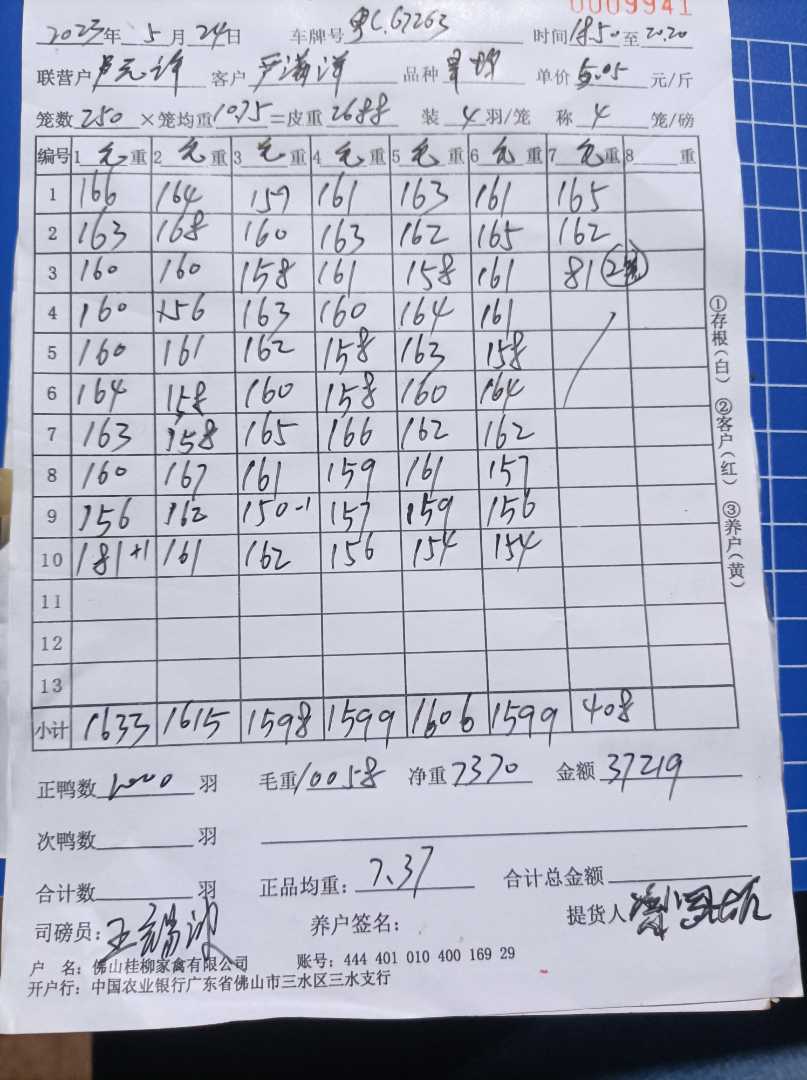 0009941
2023年 5 月 24日 车牌号粤C.G7263 时间18.50至20.20
联营户 客户 严海洋 品种 单价5.05 元/斤
笼数 250 ×笼均重10.75=皮重2688 装 4 羽/笼 称 4 笼/磅
编号 1 毛 重 2 毛 重 3 毛 重 4 毛 重 5 毛 重 6 毛 重 7 毛 重 8 重
1 166 164 159 161 163 161 165
2 163 168 160 163 162 165 162
3 160 160 158 161 158 161 81 (2笼)
4 160 156 163 160 164 161
5 160 161 162 158 163 158
6 164 158 160 158 160 164
7 163 158 165 166 162 162
8 160 167 161 159 161 157
9 156 162 150-1 157 159 156
10 181+1 161 162 156 154 154
11
12
13
小计 1633 1615 1598 1599 1606 1599 408
正鸭数 1000 羽 毛重10058 净重7370 金额37219
次鸭数 羽
合计数 羽 正品均重:7.37 合计总金额
司磅员: 养户签名: 提货人
户 名:佛山桂柳家禽有限公司 账号:444 401 010 400 169 29
开户行:中国农业银行广东省佛山市三水区三水支行
①存根(白) ②客户(红) ③养户(黄)